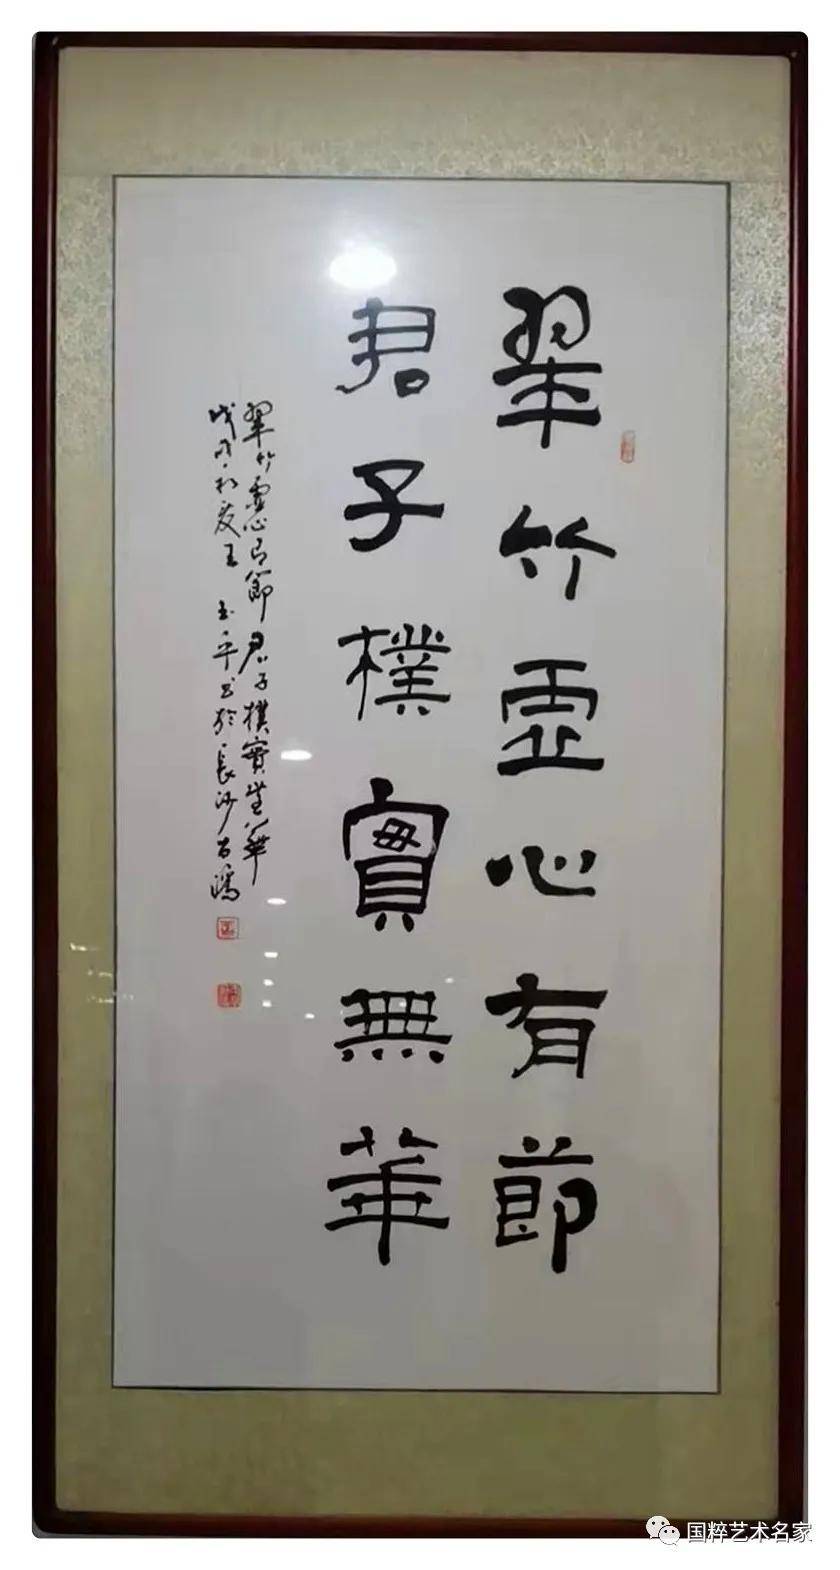 翠竹虛心有節
君子樸實無華
翠竹虛心有節君子樸實無華
戊戌初夏王玉平書於長沙
国粹艺术名家